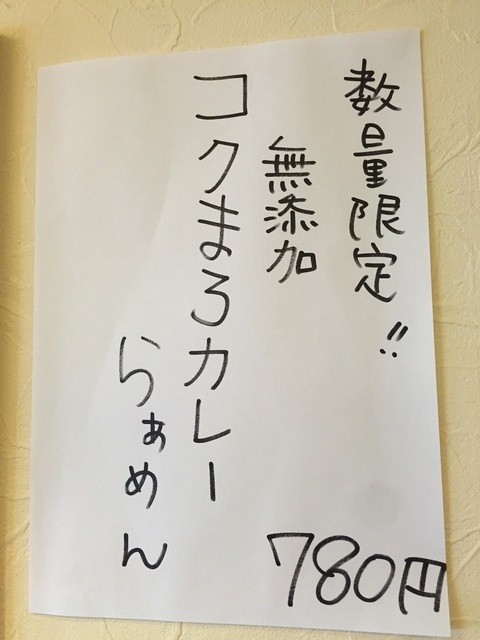 数量限定!!
無添加
コクまろカレー
らぁめん
780円